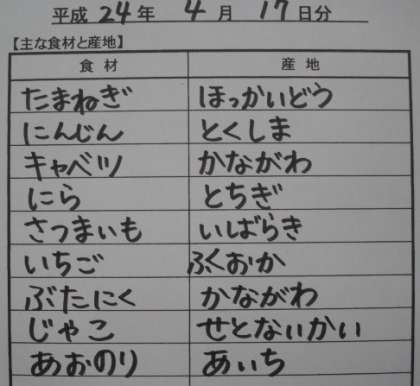 平成 24 年 4 月 17 日分
【主な食材と産地】
食材 産地
たまねぎ ほっかいどう
にんじん とくしま
キャベツ かながわ
にら とちぎ
さつまいも いばらき
いちご ふくおか
ぶたにく かながわ
じゃこ せとないかい
あおのり あいち